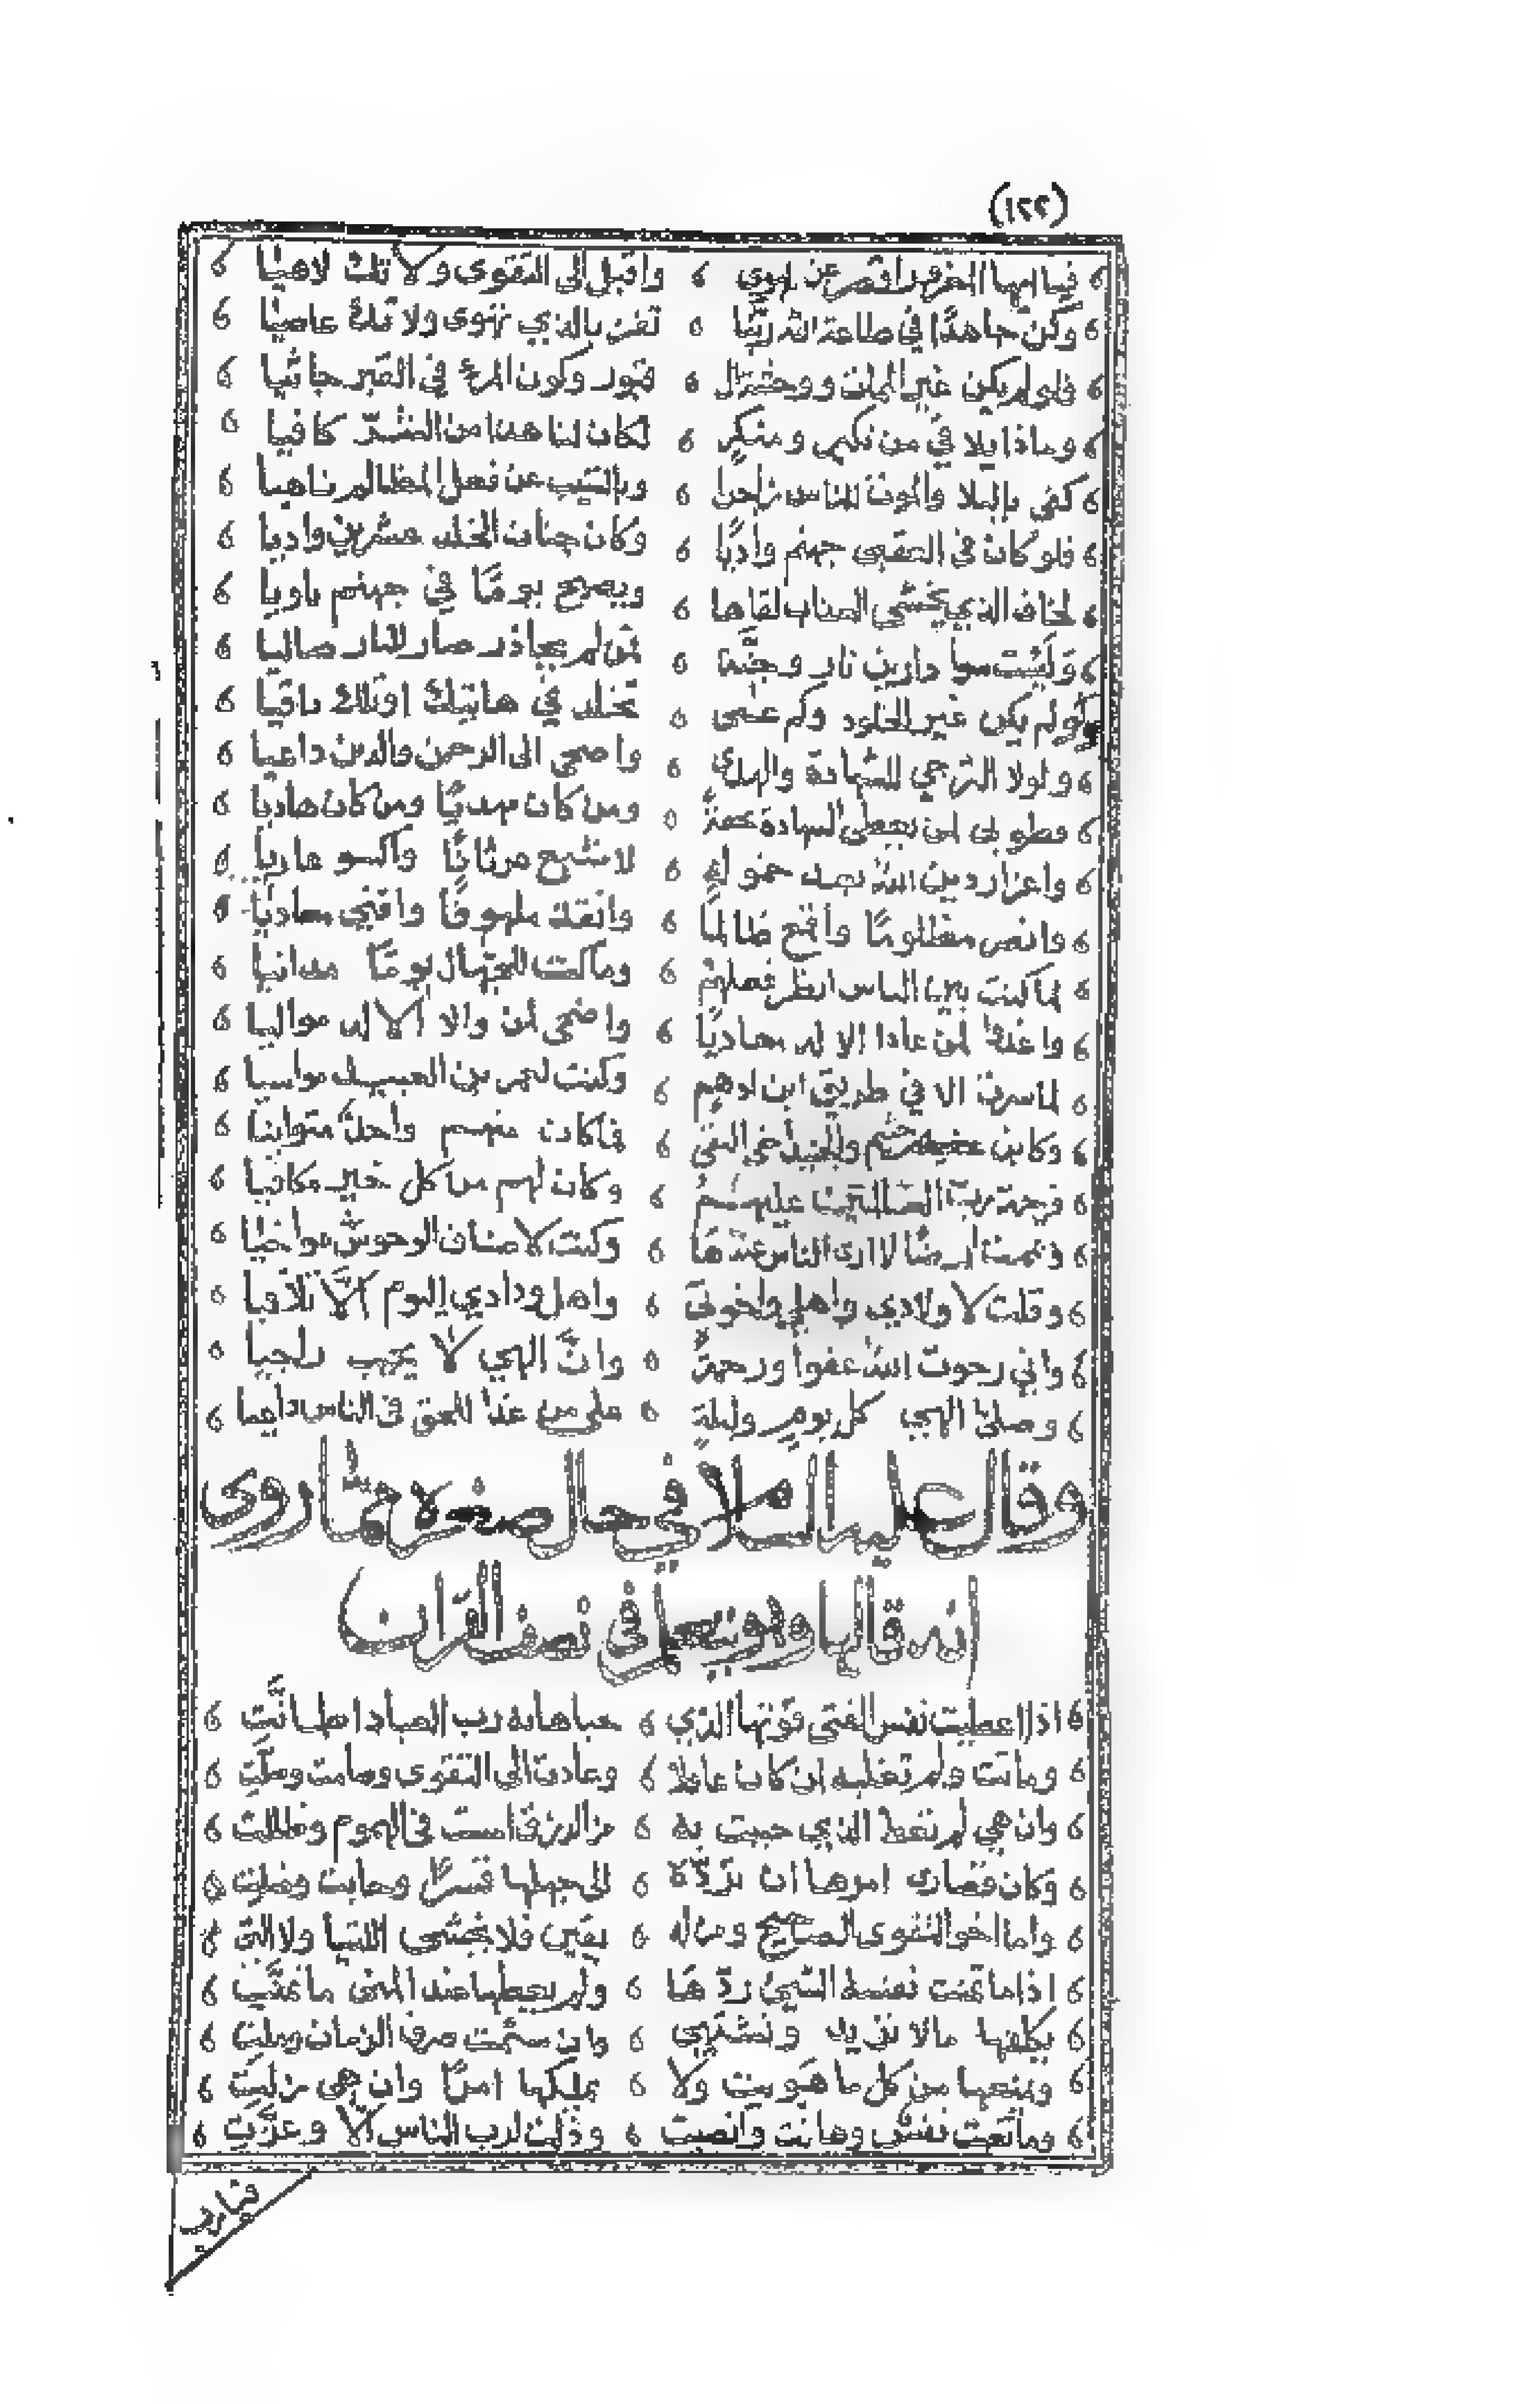 (١٢٢)
فيا ايها المغرور اقصر عن الهوى واقبل الى التقوى ولا تك لاهيا
وكن جاهدًا في طاعة الله ربنا تفز بالذي تهوى ولا تك عاصيا
فلو لم يكن غير الممات ووحشة ال قبور وكون المرء في القبر جاثيا
وماذا يلاقي من نكير ومنكر لكان لنا هذا من الشر كافيا
كفى بالبلا والموت للناس زاجرا وبالشيب عن فعل المظالم ناهيا
فلو كان في العقبى جهنم واديا وكان جنان الخلد عشرين واديا
لخاف الذي يخشى العذاب لقاها ويصرح يومًا في جهنم ثاويا
وليست سوا دارين نار وجنة فمن لم يحاذر صار للنار صاليا
ولم يكن غير الخلود وكم على تخلد في هاتيك اوتاك باقيا
ولولا الترجي للشهادة والهدى واضحى الى الرحمن والدين داعيا
فطوبى لمن يعطى الشهادة ومن كان مهديًا ومن كان هاديا
واعزاز دين الله بعد خموله لاشبع غرثانًا واكسو عاريا
وانصر مظلومًا واقمع ظالمًا وانقذ ملهوفًا وافني معاديا
لما كنت بين الناس انظر فعلهم وما كنت للجهال يومًا مدانيا
واعذا لمن عادا الاله معاديًا واضحى لمن والا الاله مواليا
لما سرت الا في طريق ابن ادهم وكنت لهم بين العبيد مواسيا
فما كان منهم واحد متوانيا
فرحمة رب العالمين عليهم وكان لهم من كل خير مكافيا
ويممت ارضًا لا ارى الناس عندها وكنت لاصناف الوحوش مواخيا
وقلت لاولادي واهلي واخوتي واهل ودادي اليوم الا تلاقيا
واني رجوت الله عفوا ورحمة وان الهي لا يخيب راجيا
وصلى الهي كل يوم وليلة على من غدا للحق في الناس داعيا
وقال عليه السلام في حال صغره مما روى
انه قالها وهو يتعلم في نصف القران
اذا اعطيت نفس الفتى قوتها الذي حباها به رب العباد اطمانت
وماتت ولم تغلبه ان كان عاقلا وعادت الى التقوى وصامت وصلت
وان هي لم تعط الذي حبيت به من الرزق امست في الهموم وظلت
وكان قصارى امرها ان تردّه الى جهلها قسرًا وخابت وضلت
واما اخو التقوى الصحيح وماله يقين فلا يخشى اللتيا ولا التي
اذا ما تمنت نفسه الشيء ردّها ولم يعطها عند المنى ما تمنت
يكلفها مالا تريد وتشتهي وان سئمت صرف الزمان وملت
ويمنعها من كل ما هويت ولا يملكها امرًا وان هي زلت
وما تعبت نفس وهانت وانصبت وذلت لرب الناس الا وعزت
فيارب